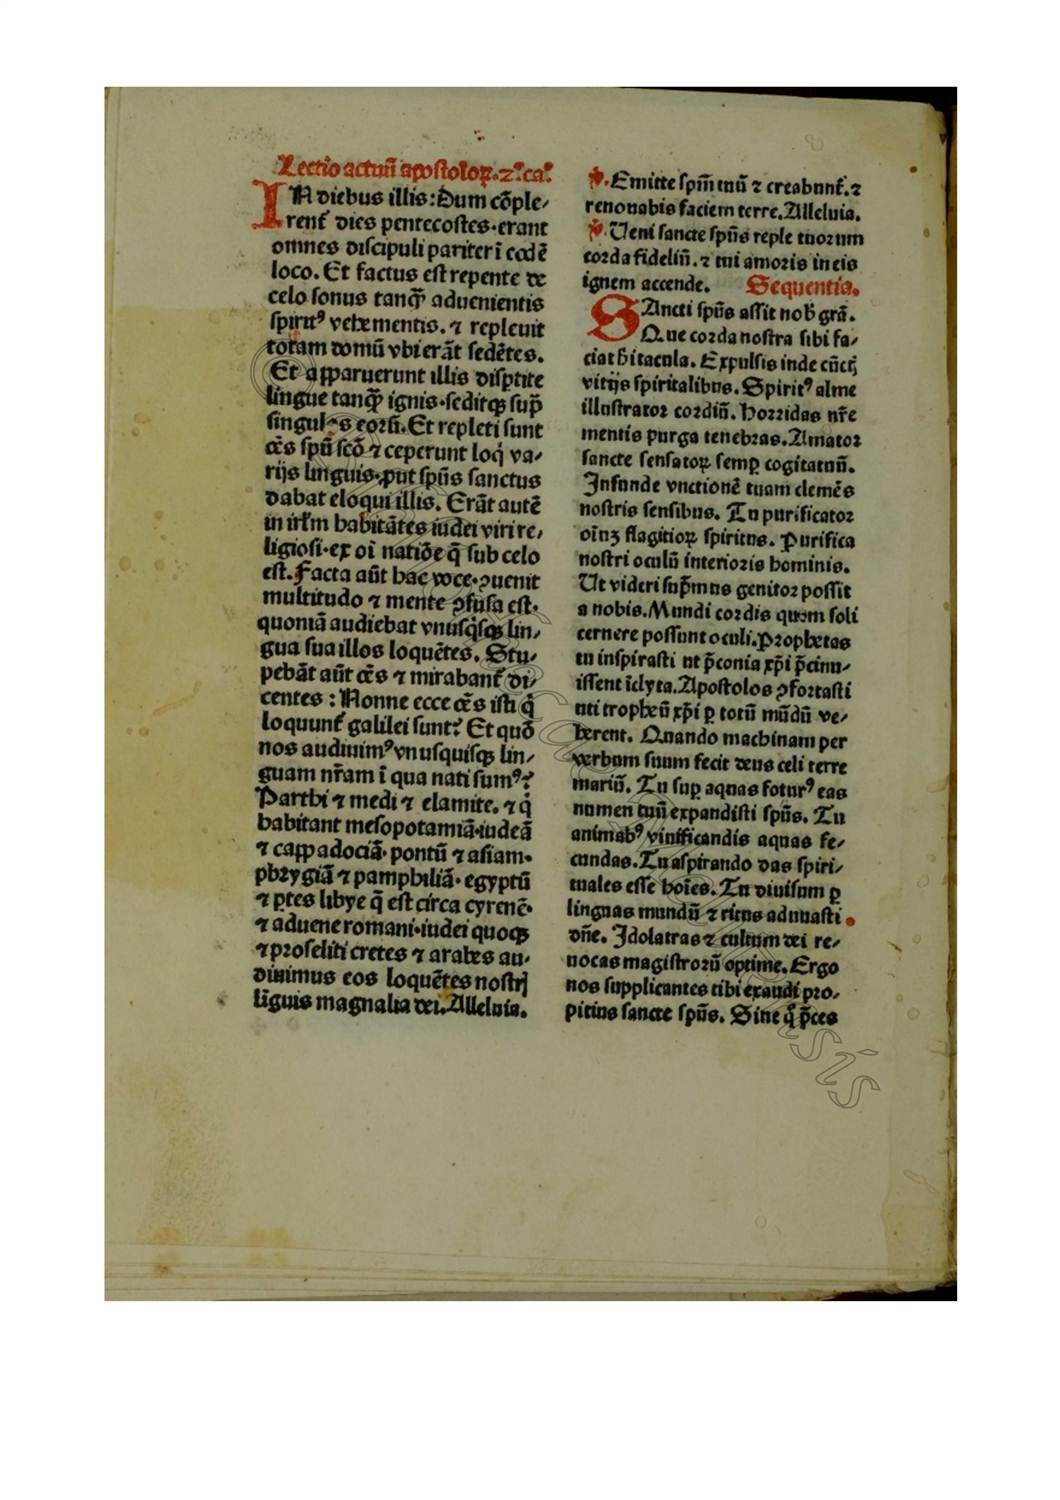 Lectio actuū apostoloꝝ. ⁊ͦ. caͦ.
IN diebus illis: Dum cōple/
renť dies pentecostes· erant
omnes discipuli pariter ī eodē
loco. Et factus est repente de
celo sonus tanq̄ȝ aduenientis
spirit⁹ vehementis. ⁊ repleuit
totam domū vbi erāt sedētes.
Et apparuerunt illis disp̱tite
lingue tanq̄ȝ ignis· seditqꝫ sup̄
singulos eorū. Et repleti sunt
oēs spū scō ⁊ ceperunt loqͥ va/
rijs linguis· ꝓut spūs sanctus
dabat eloqui illis. Erāt autē
in irlm̄ habitātes iudei viri re/
ligiosi· ex oī natiōe q̄ sub celo
est. Facta aūt hac voce· ꝯuenit
multitudo ⁊ mente ꝯfusa est·
quoniā audiebat vnusqͥsqꝫ lin/
gua sua illos loquētes. Stu/
pebāt aūt oēs ⁊ mirabanť di/
centes: Nonne ecce oēs isti qͥ
loquunť galilei sunt? Et quō
nos audiuim⁹ vnusquisqꝫ lin/
guam nr̄am ī qua nati sum⁹?
Parthi ⁊ medi ⁊ elamite. ⁊ qͥ
habitant mesopotamiā· iudeā
⁊ cappadociā· pontū ⁊ asiam·
phrygiā ⁊ pamphiliā· egyptū
⁊ ꝑtes libye q̄ est circa cyrenē·
⁊ aduene romani· iudei quoqꝫ
⁊ proseliti cretes ⁊ arabes au/
diuimus eos loquētes nostrꝭ
līguis magnalia dei. Alleluia.
℣. Emitte spm̄ tuū ⁊ creabunť. ⁊
renouabis faciem terre. Alleluia.
℣. Ueni sancte spūs reple tuorum
corda fideliū. ⁊ tui amoris in eis
ignem accende. Sequentia.
SAncti spūs assit nob̄ grā.
Que corda nostra sibi fa/
ciat hītacula. Expulsis inde cūctꝭ
vitijs spiritalibus. Spirit⁹ alme
illustrator cordiū. Horridas nr̄e
mentis purga tenebras. Amator
sancte sensatoꝝ semꝑ cogitatuū.
Infunde vnctionē tuam clemēs
nostris sensibus. Tu purificator
oīuꝫ flagitioꝝ spiritus. Purifica
nostri oculū interioris hominis.
Ut videri sup̄mus genitor possit
a nobis. Mundi cordis quem soli
cernere possunt oculi. Prophetas
tu inspirasti ut p̄conia xp̄i p̄cinu/
issent īclyta. Apostolos ꝯfortasti
uti tropheū xp̄i ꝑ totū mūdū ve/
herent. Quando machinam per
verbum suum fecit deus celi terre
mariū. Tu suꝑ aquas fotur⁹ eas
numen tuū expandisti spūs. Tu
animab⁹ viuificandis aquas fe/
cundas. Tu aspirando das spiri/
tuales esse hoīes. Tu diuisum ꝑ
linguas mundū ⁊ ritus adunasti
dn̄e. Idolatras ⁊ cultum dei re/
uocas magistrorū optime. Ergo
nos supplicantes tibi exaudi pro/
pitius sancte spūs. Sine qͦ p̄ces